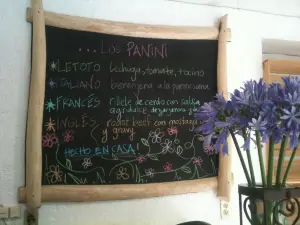 ...LOS PANINI
LETOTO lechuga, tomate, tocino
ITALIANO berenjena a la parmesana
FRANCÉS filete de cerdo con salsa
agridulce de
INGLÉS roast beef con mostaza
y gravy
HECHO EN CASA!